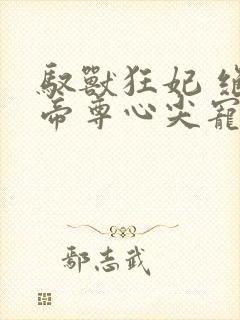 馭獸狂妃
帝尊心尖寵
鄢志武